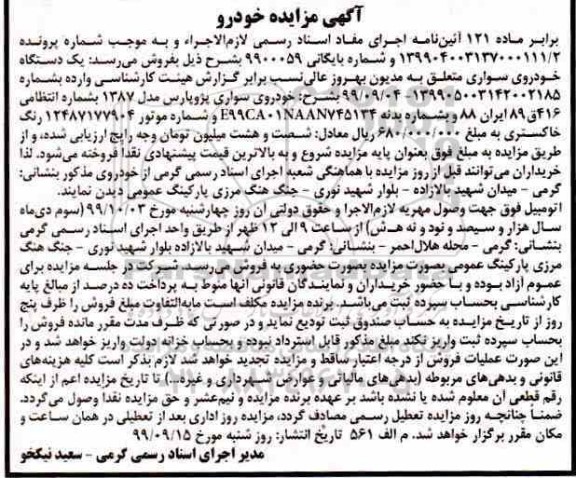 آگهی مزایده خودرو
برابر ماده ۱۲۱ آئین‌نامه اجرای مفاد اسناد رسمی لازم‌الاجراء و به موجب شماره پرونده
۱۳۹۹۰۴۰۰۳۱۳۷۰۰۰۱۱۱/۲ و شماره بایگانی ۹۹۰۰۰۵۹ بشرح ذیل بفروش می‌رسد: یک دستگاه
خودروی سواری متعلق به مدیون بهروز عالی‌نسب برابر گزارش هیئت کارشناسی وارده بشماره
۱۳۹۹۰۵۰۰۳۱۴۲۰۰۲۱۸۵-۹۹/۰۹/۰۴ بشرح: خودروی سواری پژوپارس مدل ۱۳۸۷ بشماره انتظامی
۴۱۶ق۸۹ ایران ۸۸ و بشماره بدنه NAAN۷۴۵۱۳۴ E۹۹CA۰۱ و شماره موتور ۱۲۴۸۷۱۷۷۹۰۴ رنگ
خاکستری به مبلغ ۶۸۰/۰۰۰/۰۰۰ ریال معادل: شصت و هشت میلیون تومان وجه رایج ارزیابی شده، و از
طریق مزایده به مبلغ فوق بعنوان پایه مزایده شروع و به بالاترین قیمت پیشنهادی نقدا فروخته می‌شود. لذا
خریداران می‌توانند قبل از روز مزایده با هماهنگی شعبه اجرای اسناد رسمی گرمی از خودروی مذکور بنشانی:
گرمی - میدان شهید بالازاده - بلوار شهید نوری - جنگ هنگ مرزی پارکینگ عمومی دیدن نمایند.
اتومبیل فوق جهت وصول مهریه لازم‌الاجرا و حقوق دولتی آن روز چهارشنبه مورخ ۹۹/۱۰/۰۳ (سوم دی‌ماه
سال هزار و سیصد و نود و نه هـ.ش) از ساعت ۹ الی ۱۲ ظهر از طریق واحد اجرای اسناد رسمی گرمی
بنشانی: گرمی - محله هلال‌احمر - بنشانی: گرمی - میدان شهید بالازاده بلوار شهید نوری - جنگ هنگ
مرزی پارکینگ عمومی بصورت مزایده بصورت حضوری به فروش می‌رسد. شرکت در جلسه مزایده برای
عموم آزاد بوده و با حضور خریداران و نمایندگان قانونی آنها منوط به پرداخت ده درصد از مبالغ پایه
کارشناسی بحساب سپرده ثبت می‌باشد. برنده مزایده مکلف است مابه‌التفاوت مبلغ فروش را ظرف پنج
روز از تاریخ مزایده به حساب صندوق ثبت تودیع نماید و در صورتی که ظرف مدت مقرر مانده فروش را
بحساب سپرده ثبت واریز نکند مبلغ مذکور قابل استرداد نبوده و بحساب خزانه دولت واریز خواهد شد و در
این صورت عملیات فروش از درجه اعتبار ساقط و مزایده تجدید خواهد شد لازم بذکر است کلیه هزینه‌های
قانونی و بدهی‌های مربوطه (بدهی‌های مالیاتی و عوارض شهرداری و غیره..) تا تاریخ مزایده اعم از اینکه
رقم قطعی آن معلوم شده یا نشده باشد بر عهده برنده مزایده و نیم‌عشر و حق مزایده نقدا وصول می‌گردد.
ضمناً چنانچه روز مزایده تعطیل رسمی مصادف گردد، مزایده روز اداری بعد از تعطیلی در همان ساعت و
مکان مقرر برگزار خواهد شد. م الف ۵۶۱ تاریخ انتشار: روز شنبه مورخ ۹۹/۰۹/۱۵
مدیر اجرای اسناد رسمی گرمی - سعید نیکخو